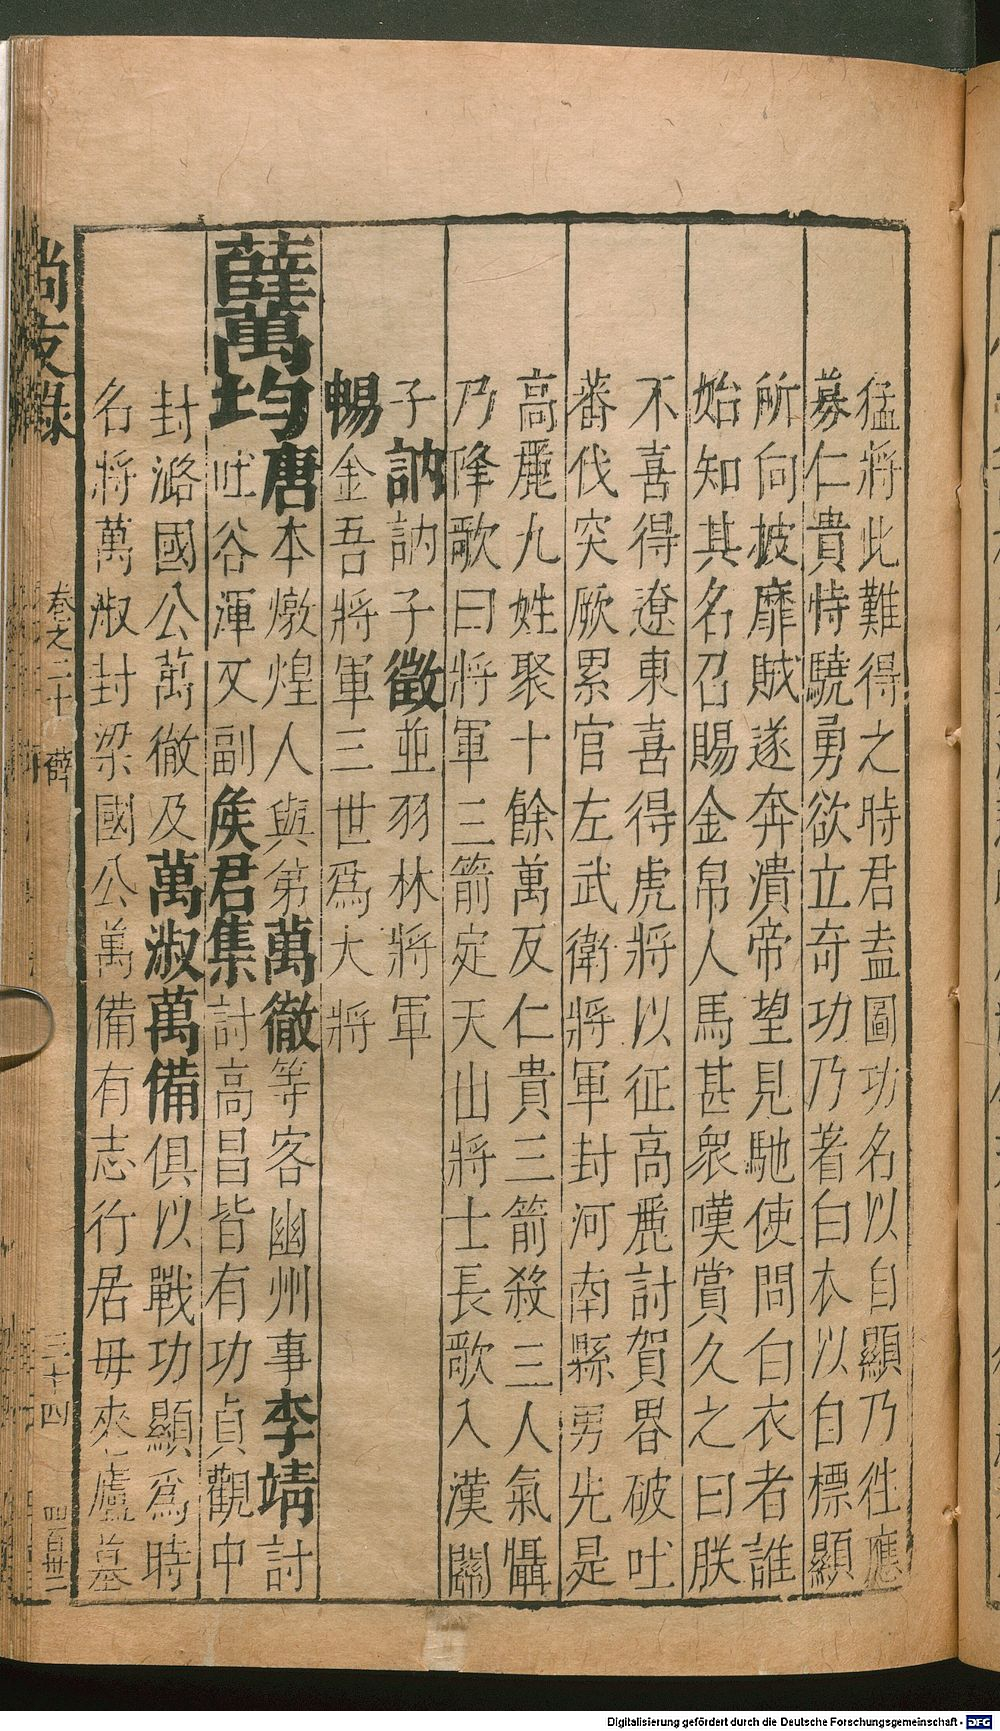 猛將此難得之時君盍圖功名以自顯乃徃應
募仁貴恃驍勇欲立竒功乃著白衣以自標顯
所向披靡賊遂奔潰帝望見馳使問白衣者誰
始知其名召賜金帛人馬甚衆嘆賞久之曰朕
不喜得遼東喜得虎將以征高麗討賀畧破吐
蕃伐突厥累官左武衛將軍封河南縣男先是
高麗九姓聚十餘萬及仁貴三箭殺三人氣懾
乃降歌曰將軍三箭定天山將士長歌入漢關
子訥訥子徵並羽林將軍
暢金吾將軍三世爲大將
薛萬均唐本燉煌人與弟萬徹等客幽州事李靖討
吐谷渾又副侯君集討高昌皆有功貞觀中
封潞國公萬徹及萬淑萬備俱以戰功顯爲時
名將萬淑封梁國公萬備有志行居毋夾廬墓
尚友錄 卷之二十 薛 三十四 四百卅二
Digitalisierung gefördert durch die Deutsche Forschungsgemeinschaft - DFG